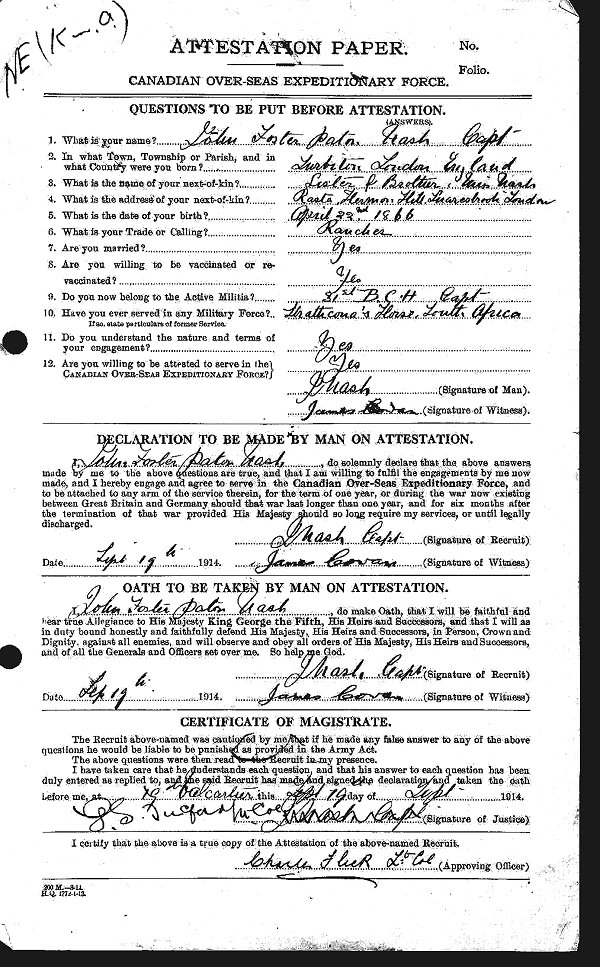 NE (K-.a)
ATTESTATION PAPER.
No.
Folio.
CANADIAN OVER-SEAS EXPEDITIONARY FORCE.
QUESTIONS TO BE PUT BEFORE ATTESTATION.
(ANSWERS).
1. What is your name? John Foster Paton Nash Capt
2. In what Town, Township or Parish, and in
what Country were you born? Surbiton London England
3. What is the name of your next-of-kin? Brother, Nash
4. What is the address of your next-of-kin? Rasta Hermon Hill Snaresbrook London
5. What is the date of your birth? April 22nd 1866
6. What is your Trade or Calling? Rancher
7. Are you married? Yes
8. Are you willing to be vaccinated or re-
vaccinated? Yes
9. Do you now belong to the Active Militia? 31st B.C.H Capt
10. Have you ever served in any Military Force? Strathcona's Horse, South Africa
If so, state particulars of former Service.
11. Do you understand the nature and terms of
your engagement? Yes
12. Are you willing to be attested to serve in the Yes
CANADIAN OVER-SEAS EXPEDITIONARY FORCE?
JNash (Signature of Man).
James Cowan (Signature of Witness).
DECLARATION TO BE MADE BY MAN ON ATTESTATION.
I, John Foster Paton Nash, do solemnly declare that the above answers
made by me to the above questions are true, and that I am willing to fulfil the engagements by me now
made, and I hereby engage and agree to serve in the Canadian Over-Seas Expeditionary Force, and
to be attached to any arm of the service therein, for the term of one year, or during the war now existing
between Great Britain and Germany should that war last longer than one year, and for six months after
the termination of that war provided His Majesty should so long require my services, or until legally
discharged.
JNash Capt (Signature of Recruit)
Date Sept 19th 1914. James Cowan (Signature of Witness)
OATH TO BE TAKEN BY MAN ON ATTESTATION.
I, John Foster Paton Nash, do make Oath, that I will be faithful and
bear true Allegiance to His Majesty King George the Fifth, His Heirs and Successors, and that I will as
in duty bound honestly and faithfully defend His Majesty, His Heirs and Successors, in Person, Crown and
Dignity, against all enemies, and will observe and obey all orders of His Majesty, His Heirs and Successors,
and of all the Generals and Officers set over me. So help me God.
JNash Capt (Signature of Recruit)
Date Sep 19th 1914. James Cowan (Signature of Witness)
CERTIFICATE OF MAGISTRATE.
The Recruit above-named was cautioned by me that if he made any false answer to any of the above
questions he would be liable to be punished as provided in the Army Act.
The above questions were then read to the Recruit in my presence.
I have taken care that he understands each question, and that his answer to each question has been
duly entered as replied to, and the said Recruit has made and signed the declaration and taken the oath
before me, at Valcartier this Sept 19 day of Sept 1914.
JNash Capt (Signature of Justice)
I certify that the above is a true copy of the Attestation of the above-named Recruit.
Charles Flick Lt Col (Approving Officer)
200 M.—8-14.
H.Q. 1772-1-13.